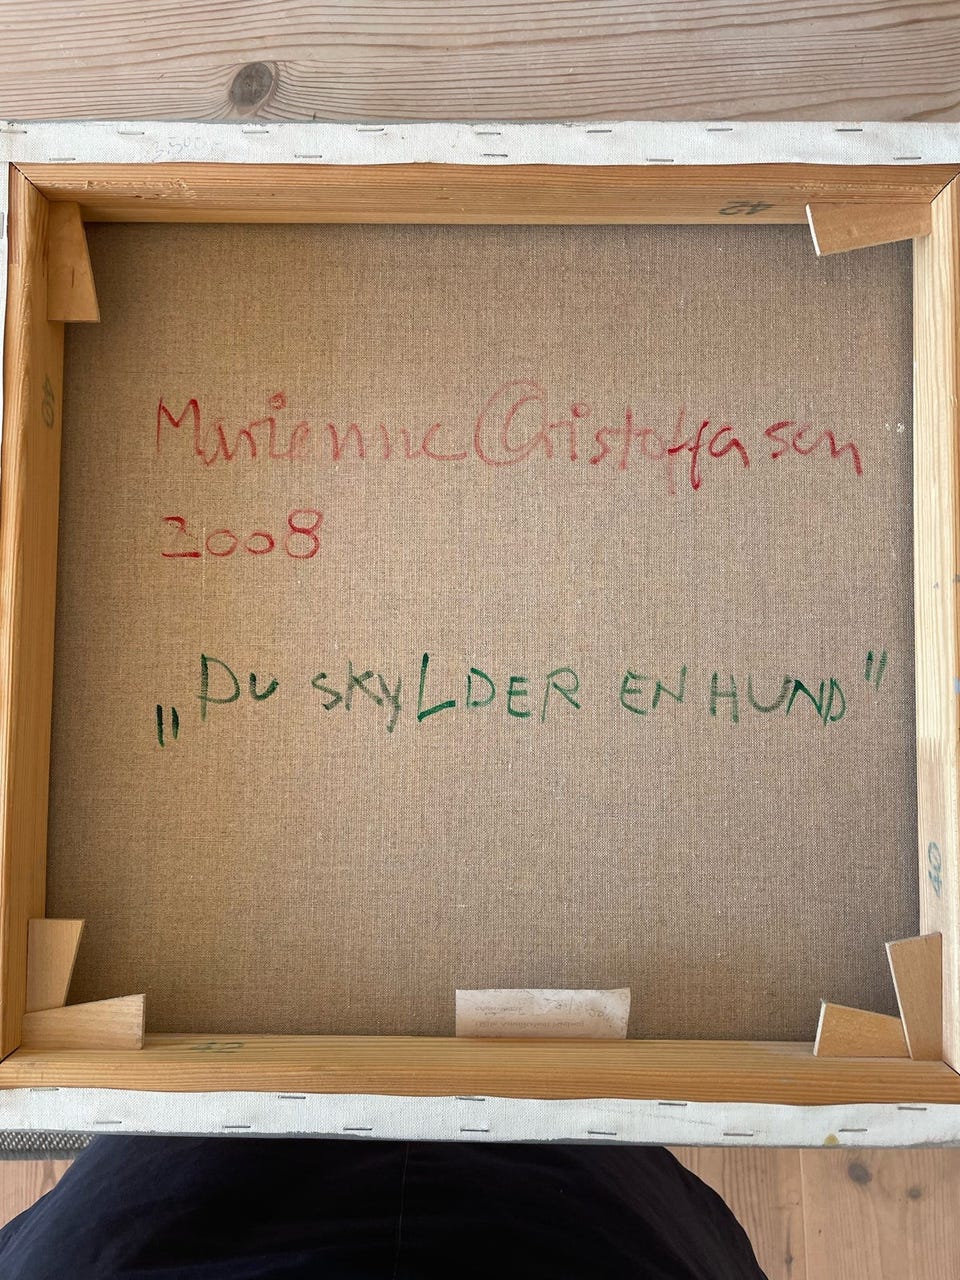 42
40
Marienne Cristoffersen
2008
„DU SKYLDER EN HUND"
40
42